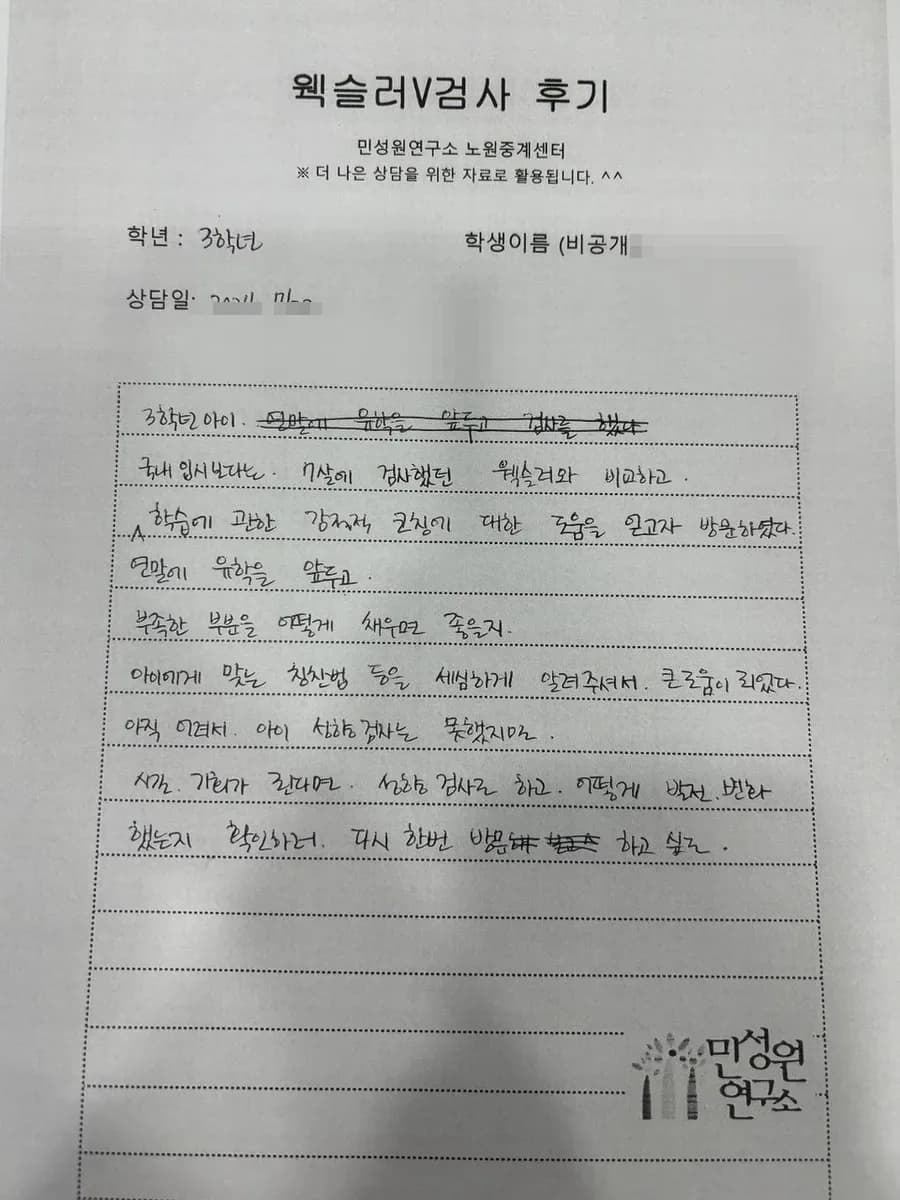 웩슬러V검사 후기
민성원연구소 노원중계센터
※ 더 나은 상담을 위한 자료로 활용됩니다. ^^
학년 : 3학년
학생이름 (비공개
상담일:
3학년 아이. 연말에 유학을 앞두고 검사를 했다
국내 입시보다는. 7살에 검사했던 웩슬러와 비교하고.
학습에 관한 강점적 코칭에 대한 도움을 얻고자 방문하였다.
연말에 유학을 앞두고.
부족한 부분을 어떻게 채우면 좋을지.
아이에게 맞는 칭찬법 등을 세심하게 알려주셔서. 큰 도움이 되었다.
아직 어려서. 아이 성향 검사는 못했지만.
시간. 기회가 된다면. 성향 검사도 하고. 어떻게 발전. 변화
했는지 확인하러. 다시 한번 방문 하고 싶다.
민성원
연구소